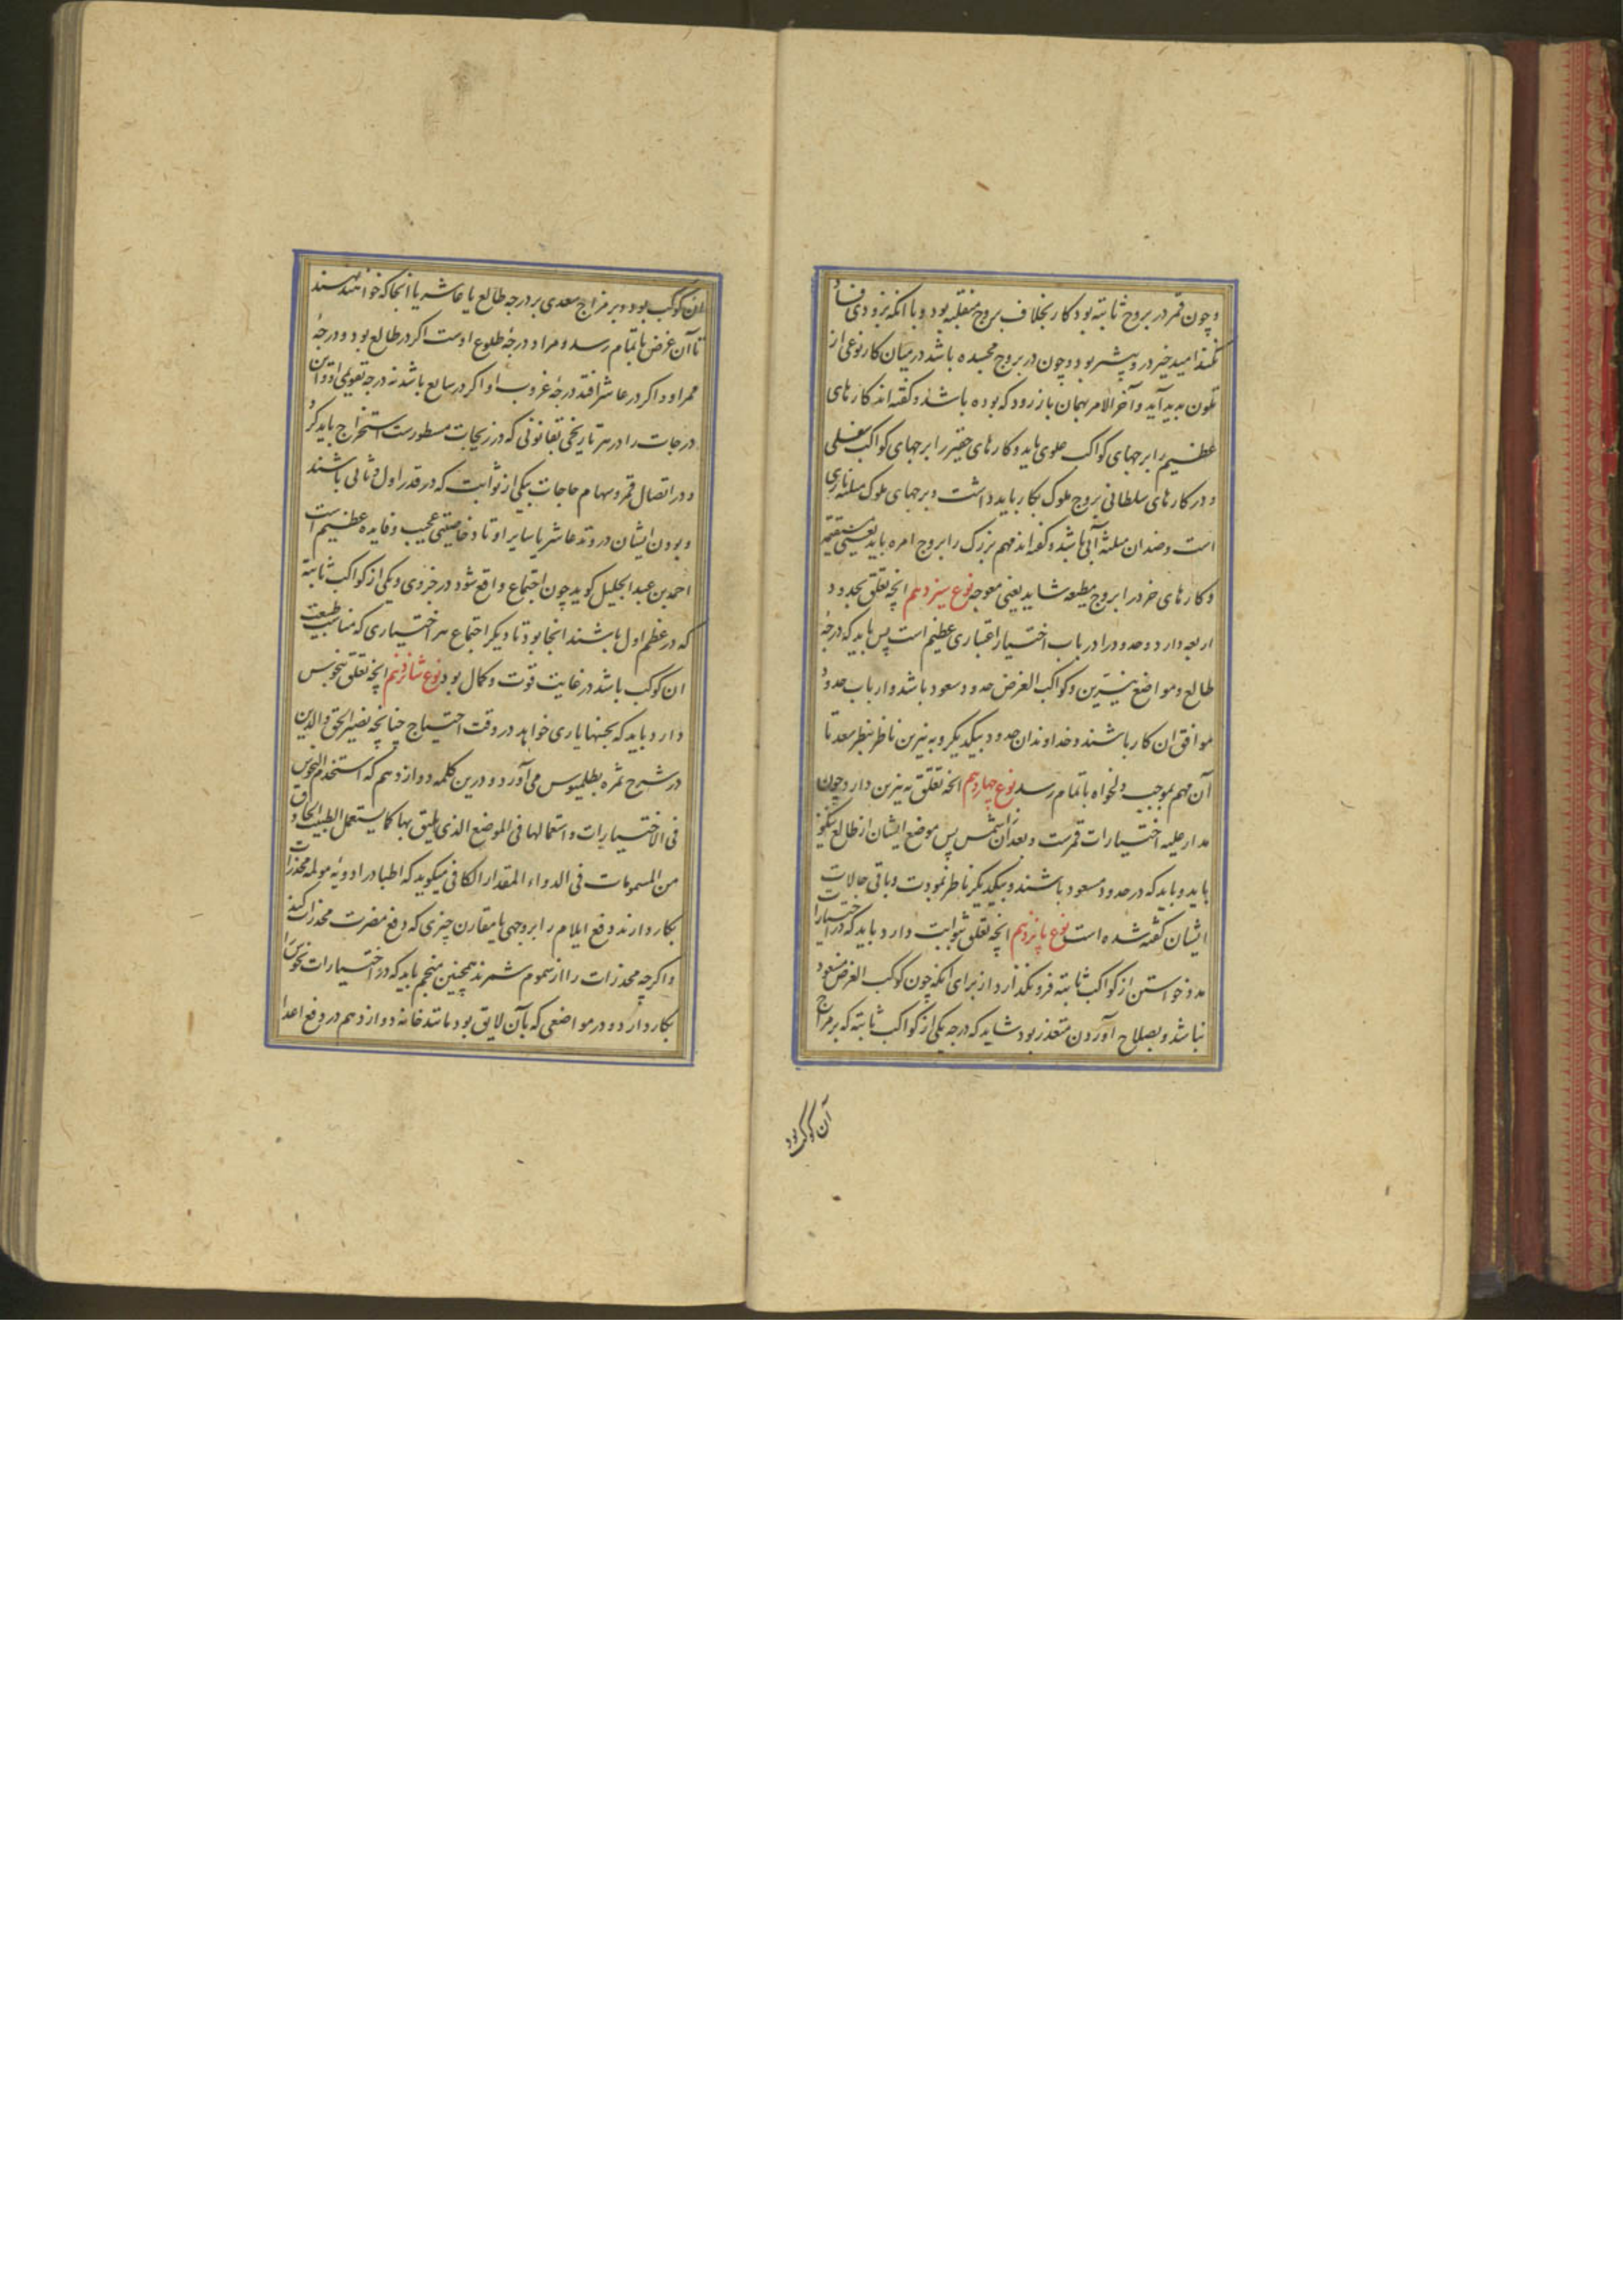 و چون قمر در بروج ثابته بود کار بخلاف بروج منقلبه بود و با آنکه بزودی
نکند امید خیر درو بیشتر بود و چون در بروج مجسده باشد در میان کار نوعی از
تلون پدید آید و آخر الامر بهمان باز رود که بوده باشد و گفته اند کارهای
عظیم را برجهای کواکب علوی باید و کارهای حقیر را برجهای کواکب سفلی
و در کارهای سلطانی بروج ملوک بکار باید داشت و برجهای ملوک مثلثه ناری
است و ضد ان مثلثه آبی باشد و گفته اند مهم بزرک را بروج امره باید یعنی مستقیمه
و کارهای خرد را بروج مطیعه شاید یعنی معوجه نوع سیزدهم انچه تعلق بحدود
اربعه دارد و حدود را در باب اختیار اعتباری عظیم است پس باید که درجهٔ
طالع و مواضع نیرین و کواکب الغرض حدود سعود باشد و ارباب حدود
موافق ان کار باشند و خداوندان حدود بیکدیکر و به نیرین ناظر بنظر سعد تا
آن مهم بموجب دلخواه باتمام رسد نوع چهاردهم انچه تعلق به نیرین دارد چون
مدار علیه اختیارات قمرست و بعد از ان شمس پس موضع ایشان از طالع نیکو
باید و باید که در حدود سعود باشند و بیکدیکر ناظر بمودت و باقی حالات
ایشان گفته شده است نوع پانزدهم انچه تعلق بثوابت دارد باید که در اختیارات
مدد خواستن از کواکب ثابته فرو نکذارد از برای آنکه چون کوکب الغرض مسعود
نباشد و بصلاح آوردن متعذر بود شاید که درجه یکی از کواکب ثابته که بر مزاج
آن کوکب بود
ان کوکب بود و بر مزاج سعدی بر درجه طالع یا عاشر یا انجا که خواهند
تا آن غرض باتمام رسد و مراد درجهٔ طلوع اوست اکر در طالع بود و درجهٔ
ممر او اکر در عاشر افتد درجهٔ غروب او اکر در سابع باشد نه درجه تقویمی او و این
درجات را در هر تاریخی بقانونی که در زیجات مسطورست استخراج باید کرد
و در اتصال قمر و سهام حاجات بیکی از ثوابت که در قدر اول و ثانی باشند
و بودن ایشان در وتد عاشر یا سایر اوتاد خاصیتی عجیب و فایده عظیم است
احمد بن عبد الجلیل کوید چون اجتماع واقع شود در جزوی و یکی از کواکب ثابته
که در عظم اول باشند انجا بود تا دیکر اجتماع هر اختیاری که مناسب طبیعت
ان کوکب باشد در غایت قوت و کمال بود نوع شانزدهم انچه تعلق بنحوس
دارد باید که بجنبها یاری خواهد در وقت احتیاج چنانچه نصیر الحق والدین
در شرح ثمره بطلمیوس می آورد و درین کلمه دوازدهم که استخدم النحوس
فی الاختیارات و استعمالها فی الموضع الذی یلیق بها کما یستعمل الطبیب الحاذق
من المسمومات فی الدواء المقدار الکافی میکوید که اطبا در ادویهٔ مولمه مخدرات
بکار دارند و فع ایلام را بر وجهی با مقارن چیزی که دفع مضرت مخدرات کند
و اکرچه مخدرات را از سموم شمرند همچنین منجم باید که در اختیارات نحوس را
بکار دارد و در مواضعی که بآن لایق بود مانند خانه دوازدهم در دفع اعدا